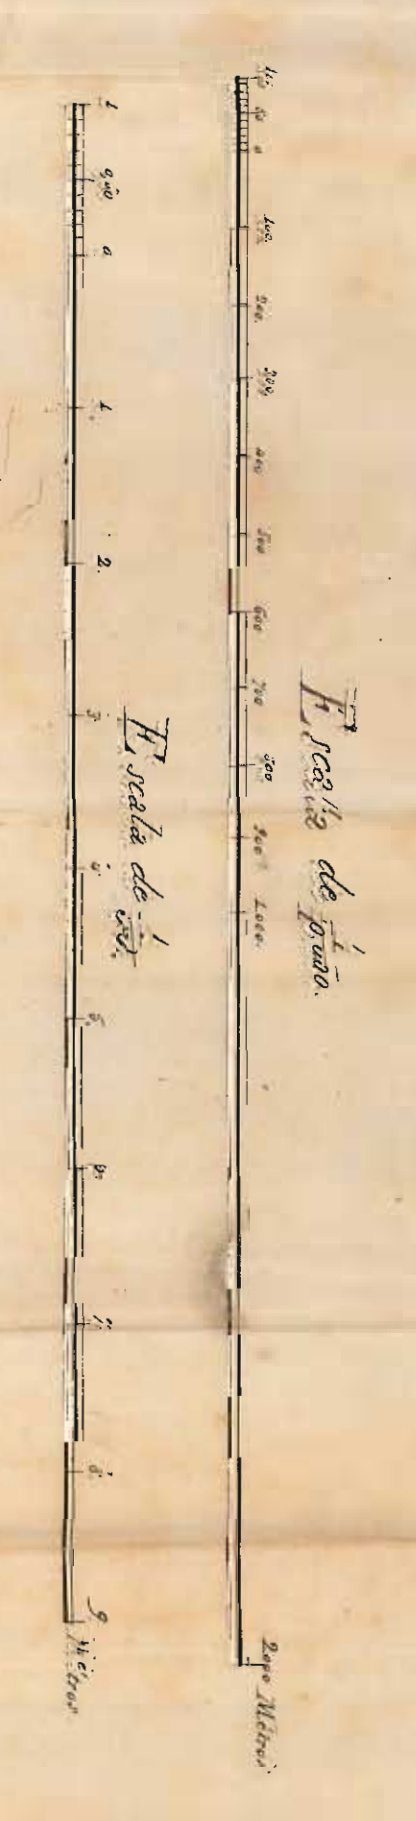 100. 50 0 100. 200. 300. 400 500 600 700 800 900 1,000. 2000 Métros
Escala de
1 0,50 0 1. 2. 3. 4. 5. 6. 7. 8. 9. Métros
Escala de